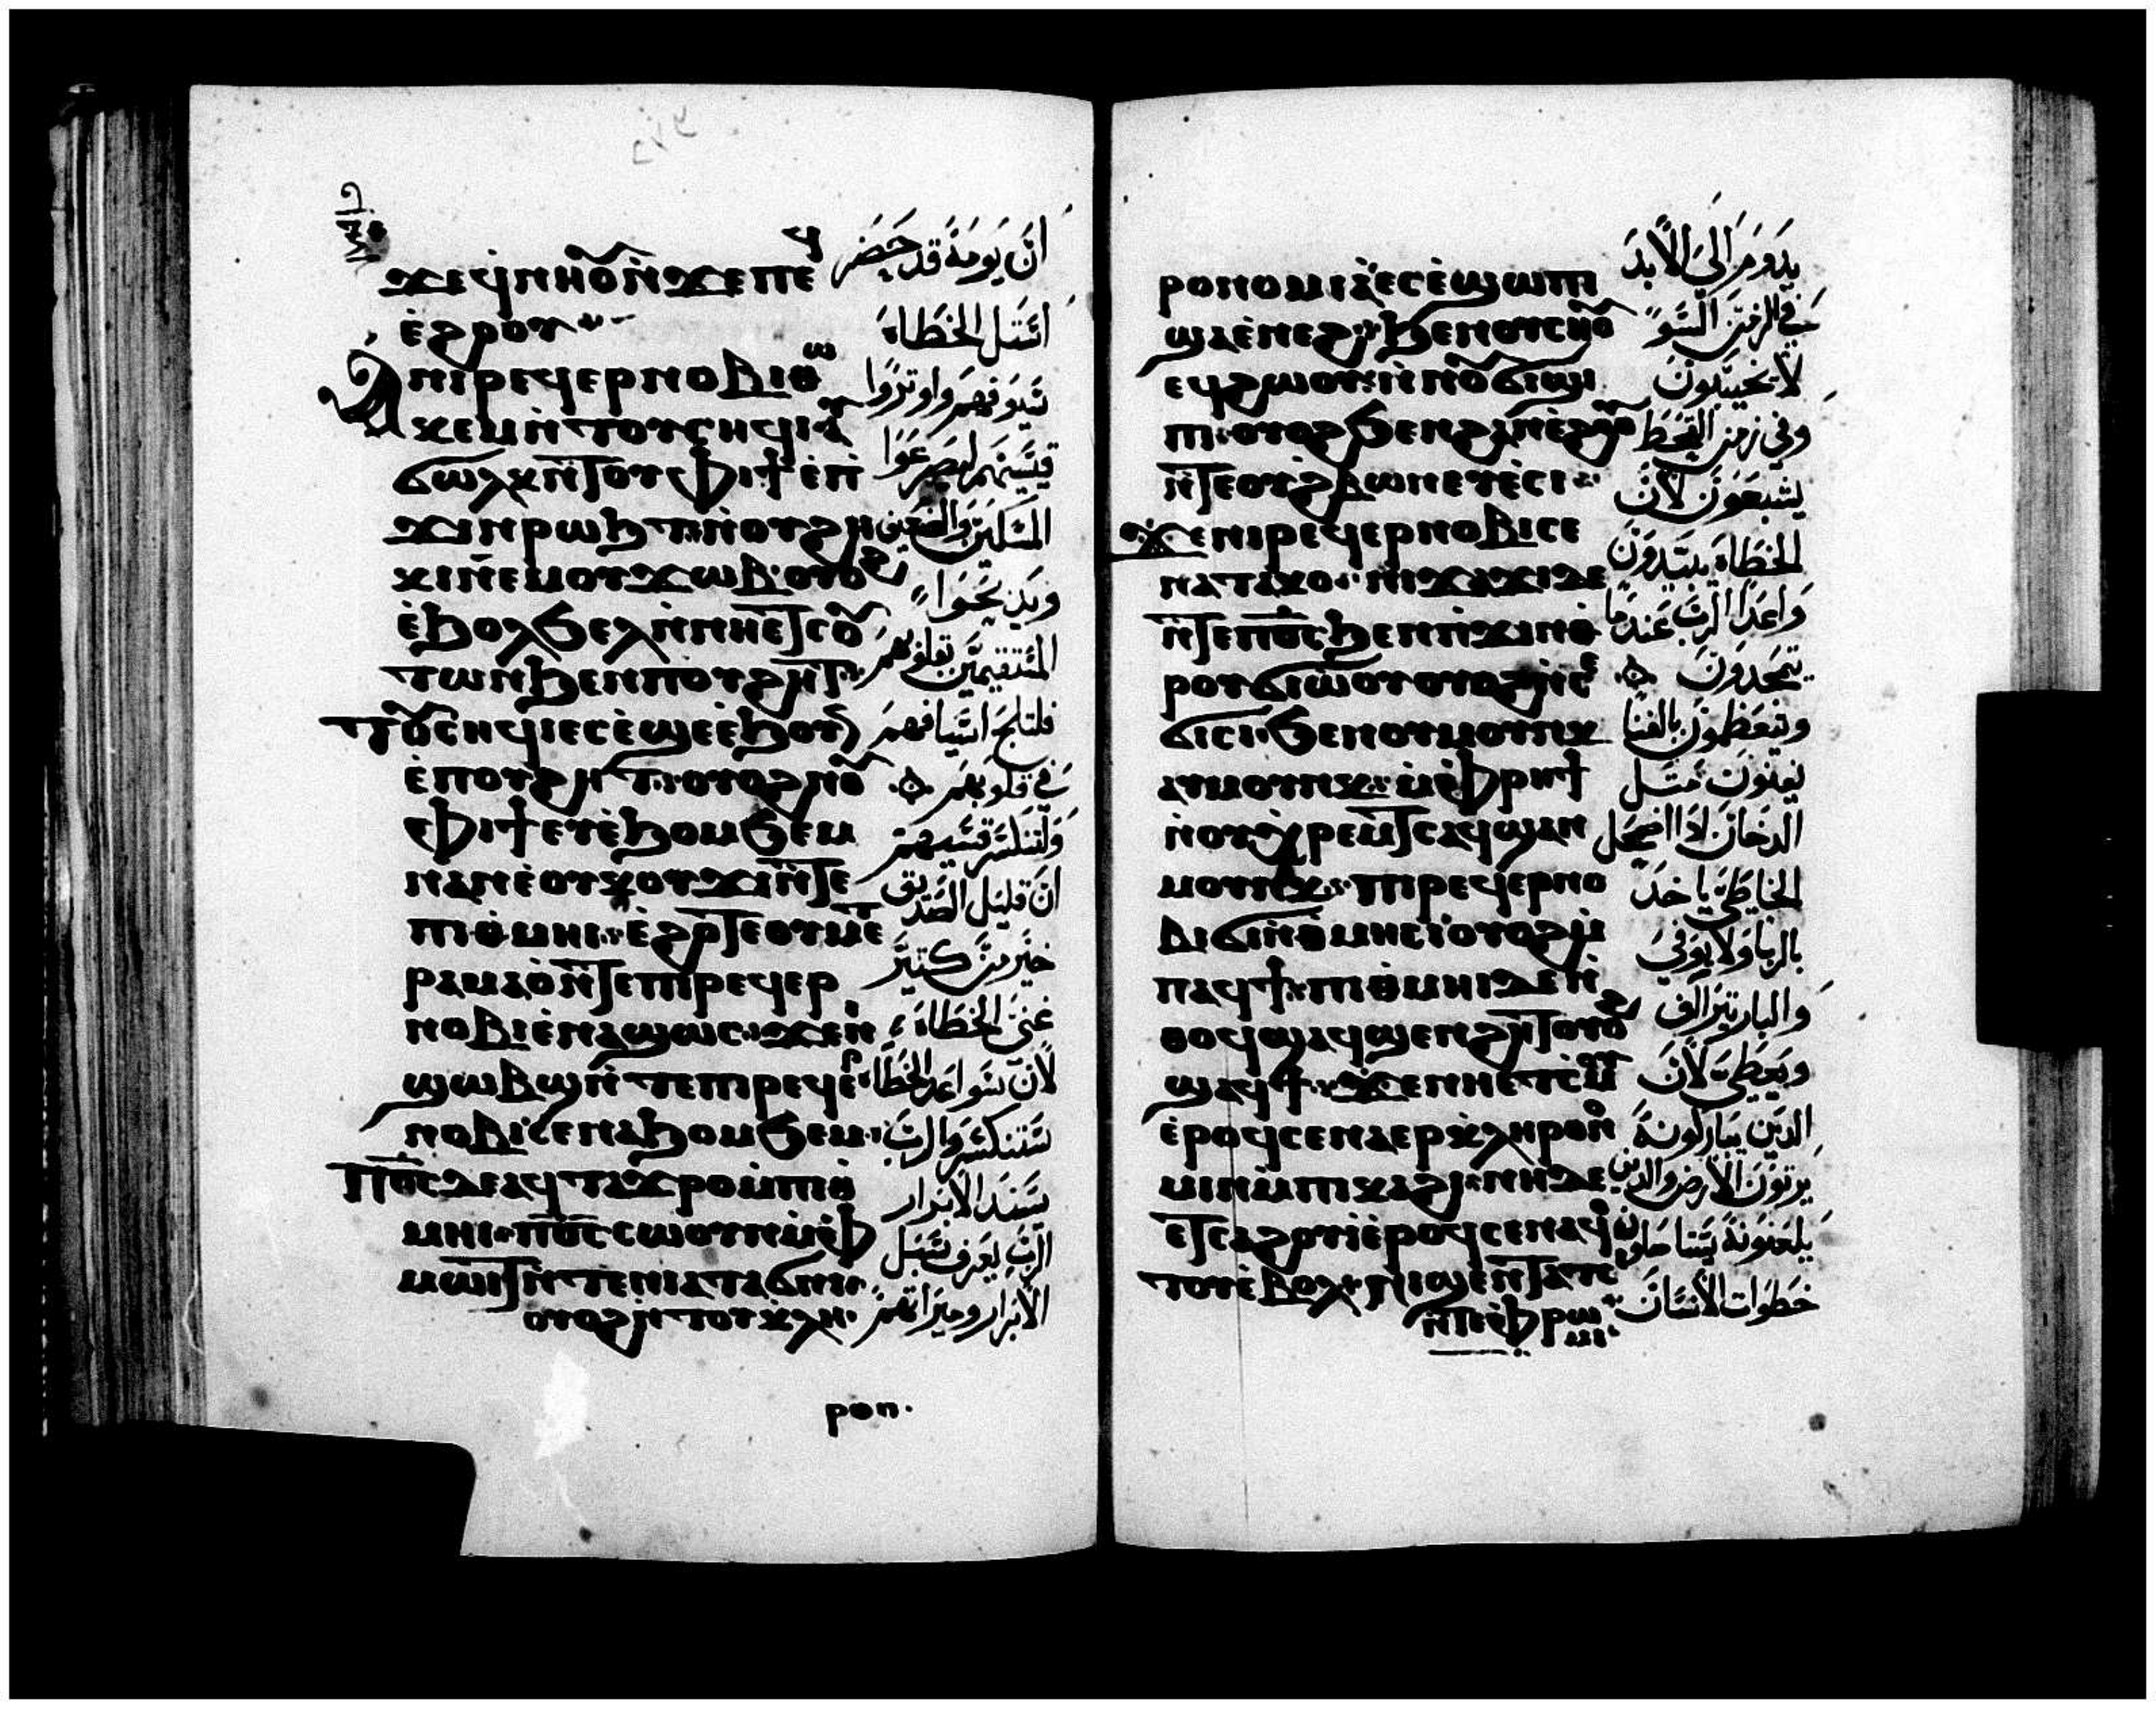 ϫⲉϥ̀ⲛⲏⲟⲩ ⲛ̀ϫⲉⲡⲉϥ
ⲉ̀ϩⲣⲟⲩ
Ⲁⲛⲓⲣⲉϥⲉⲣⲛⲟⲃⲓ ⲑⲱ
ⲕⲉⲙ ⲛ̀ⲧⲟⲩⲥⲏϥⲓ ⲁⲩ
ϭⲱⲗⲕ ⲛ̀ⲧⲟⲩⲫⲓϯ ⲉ̀ⲡ
ϫⲓⲛⲣⲱϧⲧ ⲛ̀ⲟⲩϩⲏ
ⲕⲓ ⲛⲉⲙⲟⲩϫⲱⲃ ⲟⲩⲟϩ
ⲉ̀ϧⲟⲗϧⲉⲗ ⲛ̀ⲛⲏⲉⲧⲥⲟⲩ
ⲧⲱⲛ ϧⲉⲛⲡⲟⲩϩⲏⲧ
ⲧⲟⲩⲥⲏϥⲓ ⲉⲥⲉ̀ϣⲉ ⲉ̀ϧⲟⲩⲛ
ⲉ̀ⲡⲟⲩϩⲏⲧ ⲟⲩⲟϩ ⲛⲟⲩ
ⲫⲓϯ ⲉⲩⲉ̀ϧⲟⲙϧⲉⲙ
ⲛⲁⲛⲉ ⲟⲩⲕⲟⲩϫⲓ ⲛ̀ⲧⲉ
ⲡⲓⲑ̀ⲙⲏⲓ ⲉ̀ϩⲟⲧⲉ ⲟⲩⲙⲉⲧ
ⲣⲁⲙⲁⲟ̀ ⲛ̀ⲧⲉ ⲡⲓⲣⲉϥⲉⲣ
ⲛⲟⲃⲓ ⲉ̀ⲛⲁϣⲱⲥ ϫⲉⲛ
ϣⲱⲃϣ ⲛ̀ⲧⲉ ⲡⲓⲣⲉϥⲉⲣ
ⲛⲟⲃⲓ ⲥⲉⲛⲁϧⲟⲙϧⲉⲙ
Ⲡⲟ̅ⲥ̅ ⲇⲉ ⲁϥⲧⲁϫⲣⲟ ⲙ̀ⲡⲓⲑ̀
ⲙⲏⲓ ⲡⲟ̅ⲥ̅ ⲥⲱⲟⲩⲛ ⲙ̀ⲫ
ⲙⲱⲓⲧ ⲛ̀ⲧⲉ ⲛⲓⲁⲧⲁϭⲛⲓ
ⲟⲩⲟϩ ⲛ̀ⲧⲟⲩⲕ̀ⲗⲏ
ⲣⲟⲛ
ان يومه قد حضر
استل الخطاه
سيوفهم واوتروا
قسيهم ليصرعوا
المسكين والفقير
ويذبحوا
المستقيمين بقلوبهم
فلتلج اسيافهم
في قلوبهم
ولتنكسر قسيهم
ان قليل الصديق
خير من كتير
غني الخطاه
لان سواعد الخطاه
ستنكسر والرب
سند الابرار
الرب يعرف سبل
الابرار وميراتهم
ⲣⲟⲛⲟⲙⲓⲁ̀ ⲉⲥⲉ̀ϣⲱⲡⲓ
ϣⲁⲉ̀ⲛⲉϩ ϧⲉⲛⲟⲩⲥⲏⲟⲩ
ⲉϥϩⲱⲟⲩ ⲛ̀ⲛⲟⲩϭⲓϣⲓ
ⲡⲓ ⲟⲩⲟϩ ϧⲉⲛϩⲁⲛⲉ̀ϩⲟⲟⲩ
ⲛ̀ⲧⲉ ⲟⲩϩⲃⲱⲛ ⲉⲩⲉ̀ⲥⲓ
ϫⲉ ⲛⲓⲣⲉϥⲉⲣⲛⲟⲃⲓ ⲥⲉ
ⲛⲁⲧⲁⲕⲟ ⲛⲓϫⲁϫⲓ ⲇⲉ
ⲛ̀ⲧⲉ ⲡⲟ̅ⲥ̅ ϧⲉⲛⲡ̀ϫⲓⲛⲑ
ⲣⲟⲩϭⲓⲱ̀ⲟⲩ ⲟⲩⲟϩ ⲛ̀ⲥⲉ
ϭⲓⲥⲓ ϧⲉⲛⲟⲩⲙⲟⲩⲛⲕ
ⲁⲩⲙⲟⲩⲛⲕ ⲙ̀ⲫ̀ⲣⲏϯ
ⲛ̀ⲟⲩⲭ̀ⲣⲉⲙⲧⲥ ⲁϥϣⲁⲛ
ⲙⲟⲩⲛⲕ ⲡⲓⲣⲉϥⲉⲣⲛⲟ
ⲃⲓ ϭⲓ ⲛ̀ⲑ̀ⲙⲏⲥⲓ ⲟⲩⲟϩ ⲙ̀
ⲡⲁϥϯ ⲡⲓⲑ̀ⲙⲏⲓ ⲇⲉ ⲛ̀
ⲑⲟϥ ϣⲁϥϣⲉⲛϩⲏⲧ ⲟⲩⲟϩ
ϣⲁϥϯ ϫⲉ ⲛⲏⲉⲧⲥⲙⲟⲩ
ⲉ̀ⲣⲟϥ ⲥⲉⲛⲁⲉⲣⲕ̀ⲗⲏⲣⲟⲛⲟ
ⲙⲓⲛ ⲙ̀ⲡⲓⲕⲁϩⲓ ⲛⲏ ⲇⲉ
ⲉⲧⲥⲁϩⲟⲩⲓ̀ ⲉ̀ⲣⲟϥ ⲥⲉⲛⲁϥⲟ
ⲧⲟⲩ ⲉ̀ⲃⲟⲗ ϣⲁⲩⲥⲟⲩⲧⲉⲛ ⲛⲓϣⲉⲛⲧⲁⲧⲥⲓ
ⲛ̀ⲧⲉ ⲫ̀ⲣⲱ
ⲙⲓ
يدوم الى الابد
في الزمن السوء
لا يخيبون
وفي زمن القحط
يشبعون لان
الخطاه يبيدون
واعدا الرب عندما
يتمجدون
ويتعظمون بالفنا
يفنون متل
الدخان اذا اضمحل
الخاطي ياخد
بالربا ولا يوفي
والبار يتراف
ويعطي لان
الدين يباركونه
يرتون الارض والدين
يلعنونه يستاصلون
خطوات الانسان